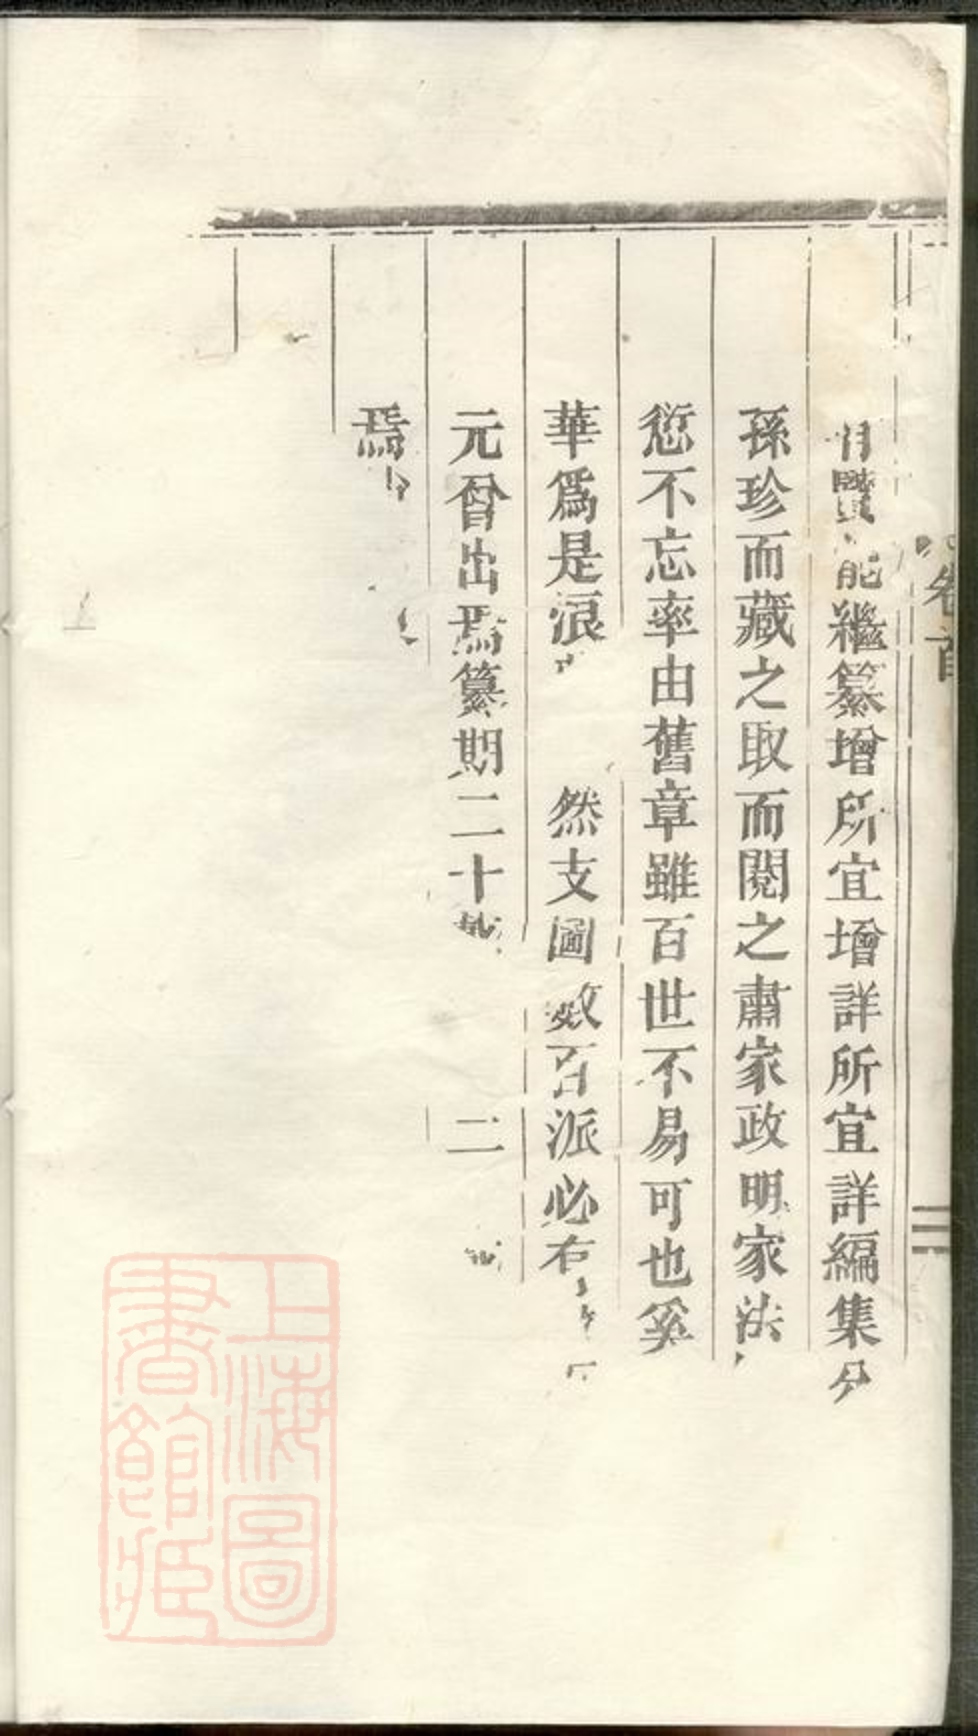 卷首
二
能繼纂增所宜增詳所宜詳編集
孫珍而藏之取而閱之肅家政明家法
愆不忘率由舊章雖百世不易可也奚
華爲是浪
然支圖
百派必有
元曾出焉纂期二十
二
焉
上海圖
書館藏